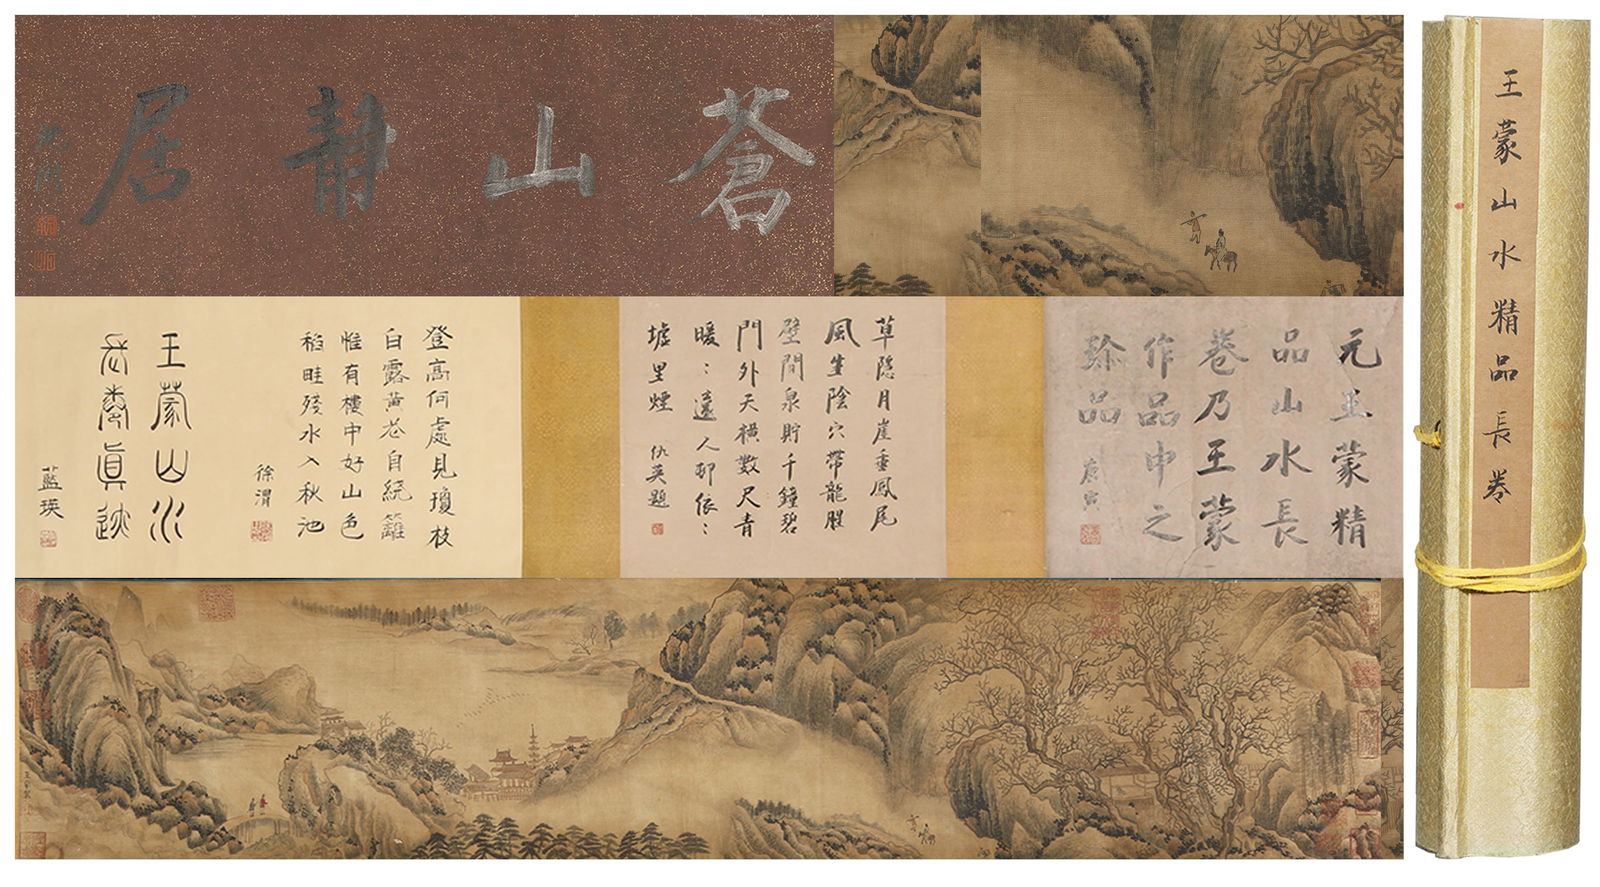 蒼山静居
元王蒙精
品山水長
卷乃王蒙
作品中之
品
唐寅
草隐月崖垂鳳尾
風生陰穴帶龍腥
壁間泉貯千鐘碧
門外天橫數尺青
暖：遠人邨依：
墟里煙
仇英題
登高何處見瓊枝
白露黃花自繞籬
惟有樓中好山色
稻畦殘水入秋池
徐渭
王蒙山水
眞跡
藍瑛
王蒙山水精品長卷